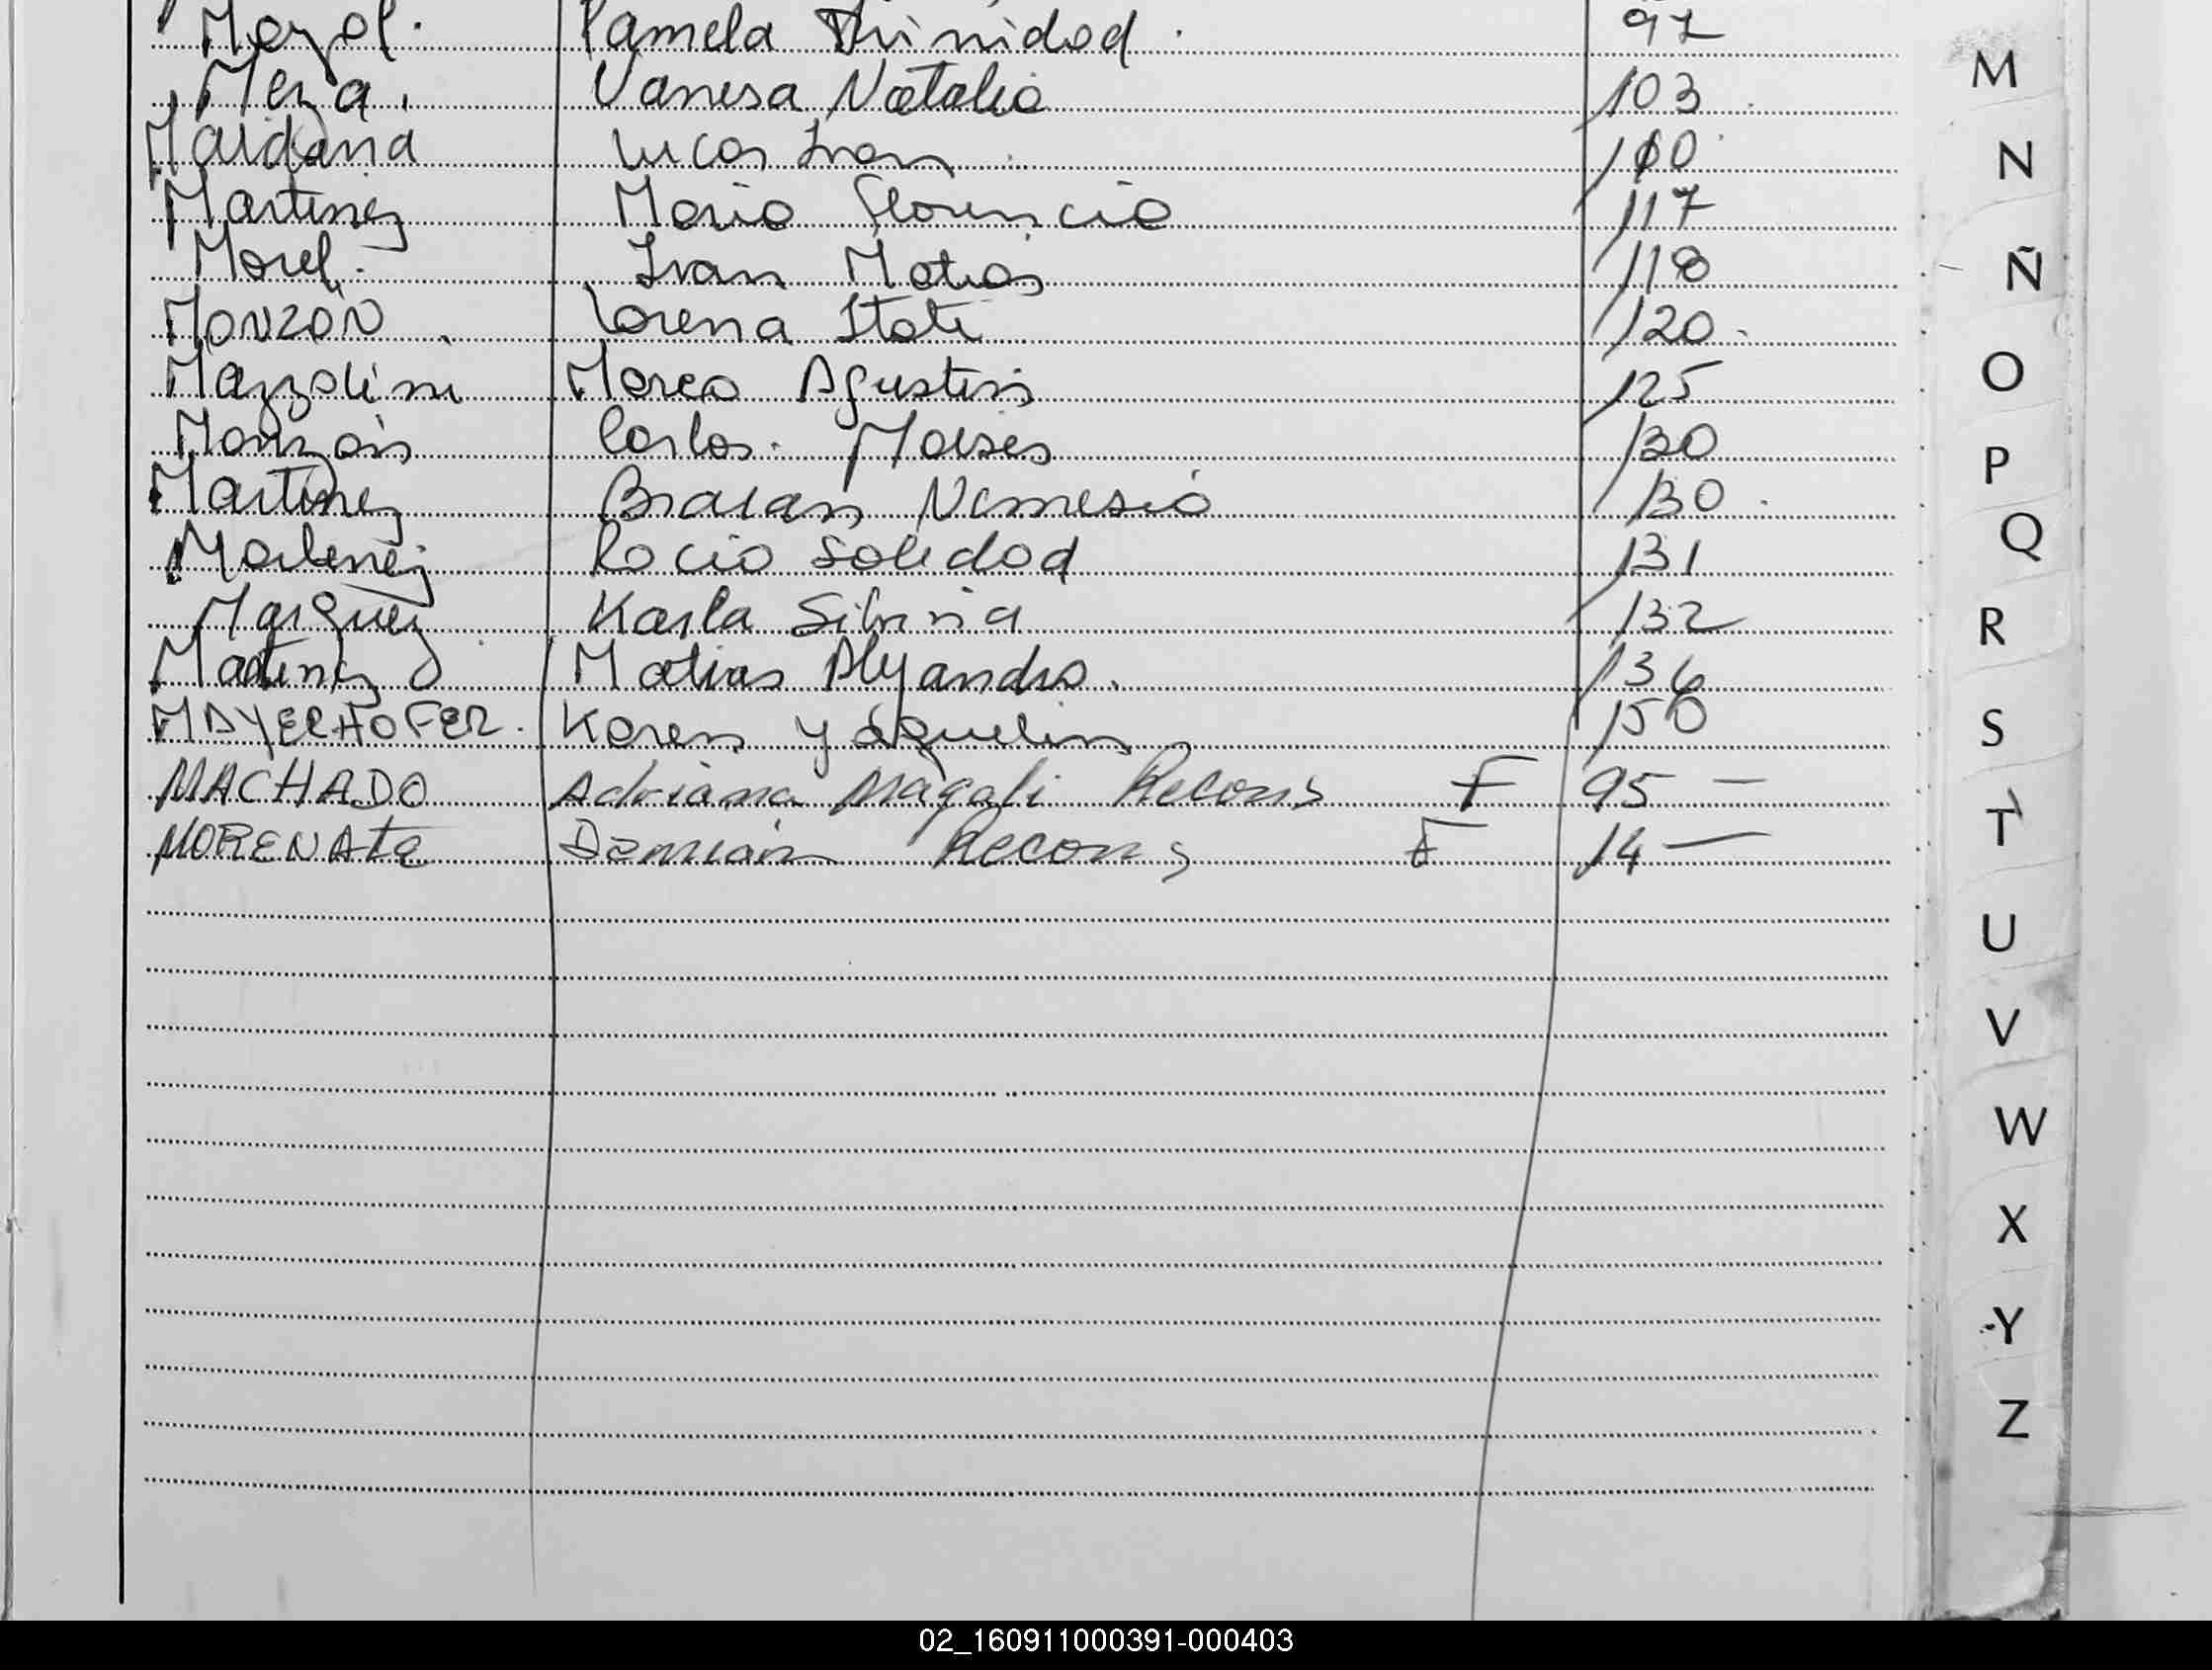 Mazol. Pamela Trinidad. 97
Meza. Vanesa Natalia 103
Maidana Lucas Ivan. 110
Martinez Maria Florencia 117
Morel. Ivan Matias 118
MONZON Lorena Itati 120
Mazzolini Marco Agustin 125
Monzon Carlos. Moises 130
Martinez Braian Nemesio 130
Martinez Rocio Soledad 131
Marquez Karla Silvina 132
Martinez Matias Alejandro. 136
MAYERHOFER. Karen Yaquelin 150
MACHADO Adriana Magali Recons F 95 —
MORENATE Damián Recons F 14 —
M
N
Ñ
O
P
Q
R
S
T
U
V
W
X
Y
Z
02_160911000391-000403